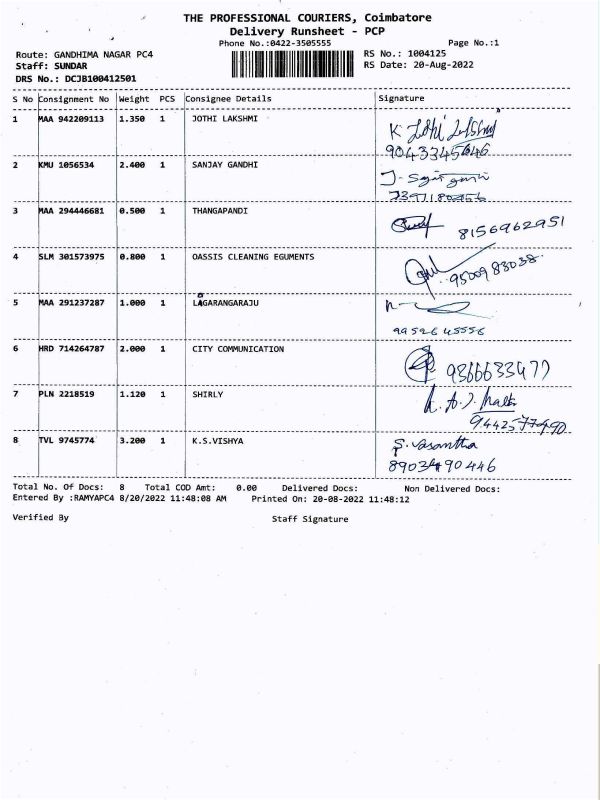 THE PROFESSIONAL COURIERS, Coimbatore
Delivery Runsheet - PCP
Phone No.:0422-3505555 Page No.:1
Route: GANDHIMA NAGAR PC4 RS No.: 1004125
Staff: SUNDAR RS Date: 20-Aug-2022
DRS No.: DCJB100412501
S No Consignment No Weight PCS Consignee Details Signature
1 MAA 942209113 1.350 1 JOTHI LAKSHMI K Jothi Lakshmi
9043345646
2 KMU 1056534 2.400 1 SANJAY GANDHI
7397180456
3 MAA 294446681 0.500 1 THANGAPANDI 8156962951
4 SLM 301573975 0.800 1 OASSIS CLEANING EGUMENTS 9500983038
5 MAA 291237287 1.000 1 LAGARANGARAJU
9952645556
6 HRD 714264787 2.000 1 CITY COMMUNICATION 9366633477
7 PLN 2218519 1.120 1 SHIRLY
9442577490
8 TVL 9745774 3.200 1 K.S.VISHYA S. Vasantha
8903490446
Total No. Of Docs: 8 Total COD Amt: 0.00 Delivered Docs: Non Delivered Docs:
Entered By :RAMYAPC4 8/20/2022 11:48:08 AM Printed On: 20-08-2022 11:48:12
Verified By Staff Signature